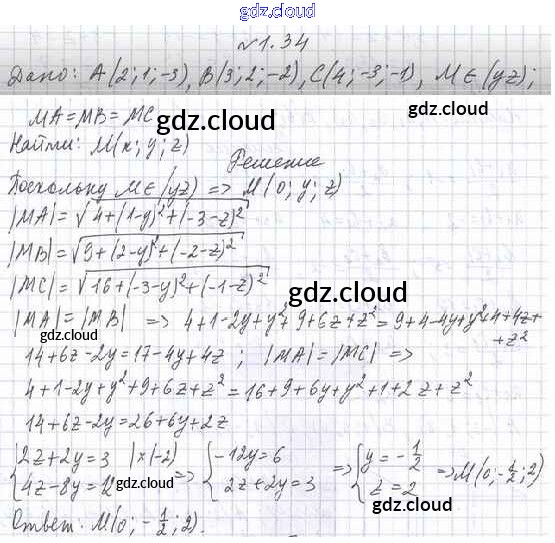 gdz.cloud
№1.34
Дано: A(2; 1; -3), B(3; 2; -2), C(4; -3; -1), M∈(yz);
MA = MB = MC gdz.cloud gdz.cloud
Найти: M(x; y; z)
Решение
Поскольку M∈(yz) => M(0; y; z)
|MA| = √4+(1-y)²+(-3-z)²
|MB| = √9+(2-y)²+(-2-z)²
|MC| = √16+(-3-y)²+(-1-z)² gdz.cloud
|MA| = |MB| => 4+1-2y+y²+9+6z+z² = 9+4-4y+y²+4+4z+
gdz.cloud +z²
14+6z-2y=17-4y+4z ; |MA| = |MC| =>
4+1-2y+y²+9+6z+z² = 16+9+6y+y²+1+2z+z²
14+6z-2y=26+6y+2z
{2z+2y=3 |x(-2) 4z-8y=12 => {-12y=6 2z+2y=3 => {y=-1/2 z=2 => M(0; -1/2; 2)
gdz.cloud gdz.cloud
Ответ: M(0; -1/2; 2).
gdz.cloud